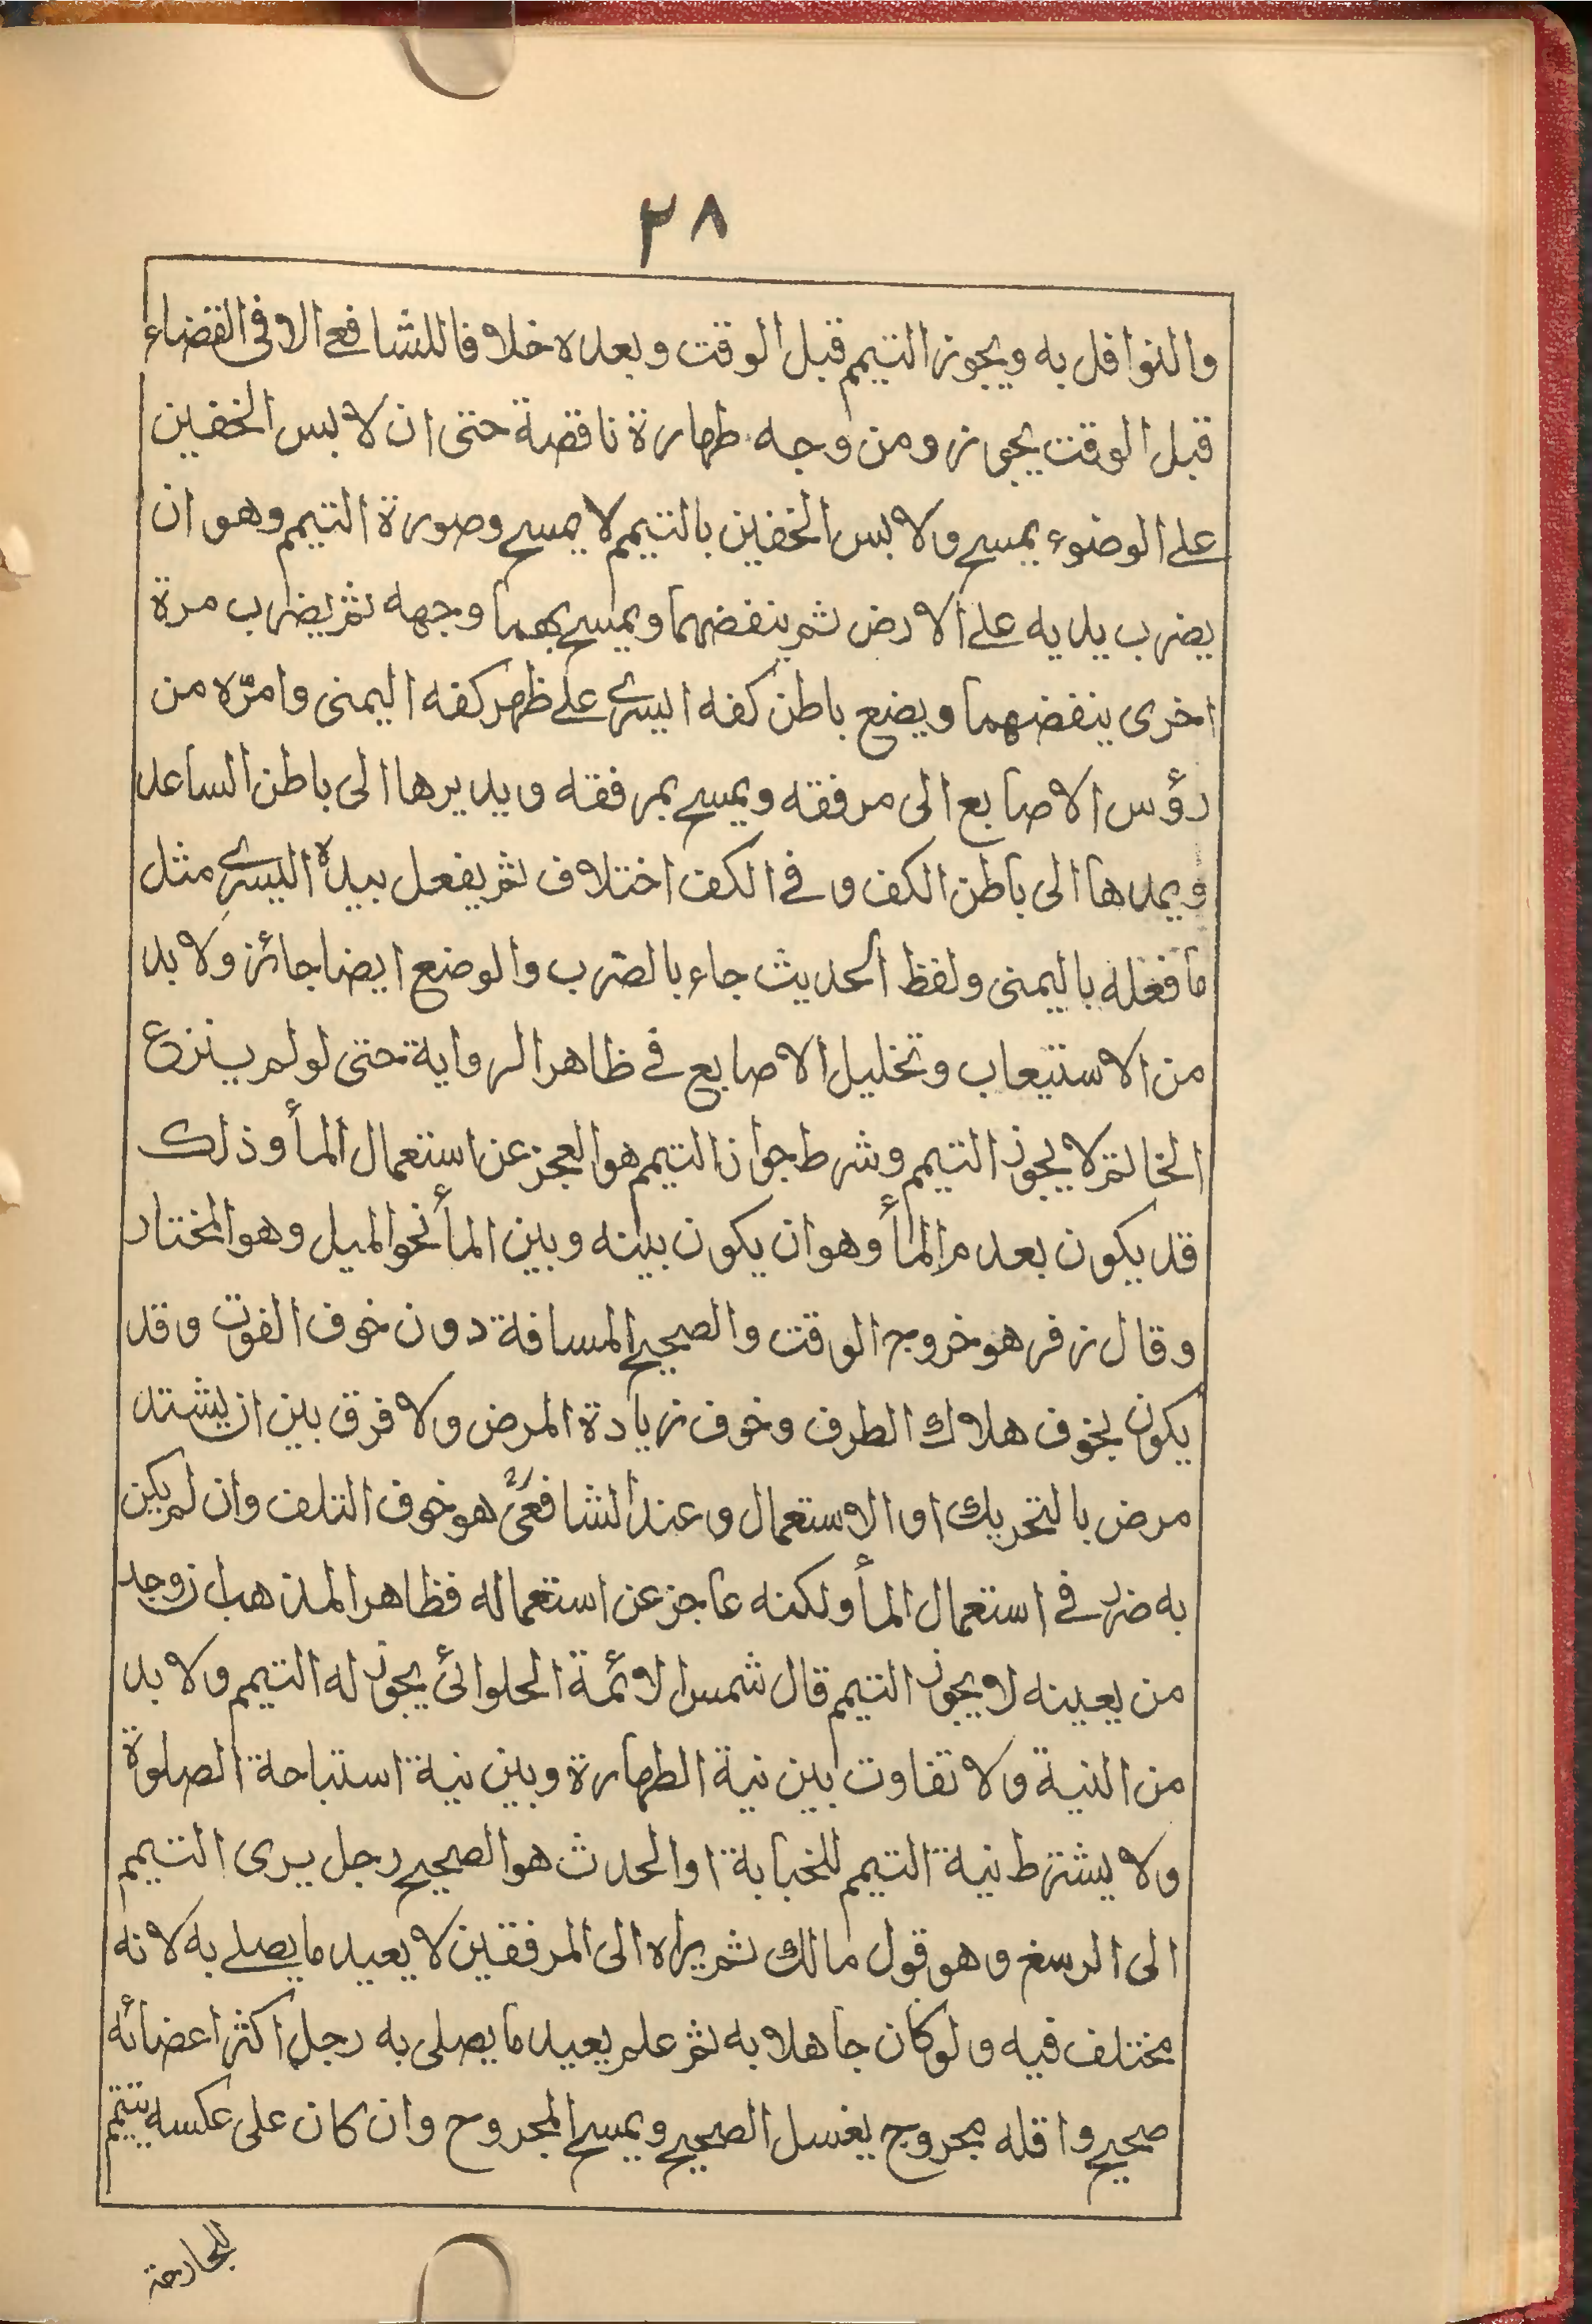 ٢٨
والنوافل به ويجوز التيمم قبل الوقت وبعده خلافا للشافعي الا في القضاء
قبل الوقت يجوز ومن وجه طهارة ناقصة حتى ان لابس الخفين
على الوضوء يمسح ولابس الخفين بالتيمم لا يمسح وصورة التيمم وهو ان
يضرب يديه على الارض ثم ينفضهما ويمسح بهما وجهه ثم يضرب مرة
اخرى ينفضهما ويضع باطن كفه اليسرى على ظهر كفه اليمنى وامرّه من
رؤس الاصابع الى مرفقه ويمسح بمرفقه ويديرها الى باطن الساعد
ويمدها الى باطن الكف وفى الكف اختلاف ثم يفعل بيده اليسرى مثل
ما فعله باليمنى ولفظ الحديث جاء بالضرب والوضع ايضا جائز ولا بد
من الاستيعاب وتخليل الاصابع في ظاهر الرواية حتى لو لم ينزع
الخاتم لا يجوز التيمم وشرط جواز التيمم هو العجز عن استعمال المأ وذلك
قد يكون بعدم المأ وهو ان يكون بينه وبين المأ نحو الميل وهو المختار
وقال زفر هو خروج الوقت والصحيح المسافة دون خوف الفوت وقد
يكون لخوف هلاك الطرف وخوف زيادة المرض ولا فرق بين ان يشتد
مرض بالتحريك او الاستعمال وعند الشافعيؒ هو خوف التلف وان لم يكن
به ضرر في استعمال المأ ولكنه عاجز عن استعماله فظاهر المذهب ان وجد
من يعينه لا يجوز التيمم قال شمس الائمة الحلوائى يجوز له التيمم ولا بد
من النية ولا تفاوت بين نية الطهارة وبين نية استباحة الصلوة
ولا يشترط نية التيمم للخبابة او الحدث هو الصحيح رجل يرى التيمم
الى الرسغ وهو قول مالك ثم يراه الى المرفقين لا يعيد ما يصلے به لانه
مختلف فيه ولو كان جاهلا به ثم علم يعيد ما يصلى به رجل اكثر اعضائه
صحيح واقله مجروح يغسل الصحيح ويمسح المجروح وان كان على عكسه يتيمم
للجارحة